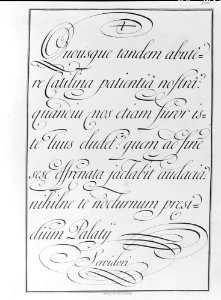 Quousque tandem abute=
re Catilina patientiâ nostra?
quandiu nos etiam furor is=
te tuus eludet? quem ad fine
sese effrenata jactabit audacia?
nihilne te nocturnum presi=
dium Palatij
Servidori